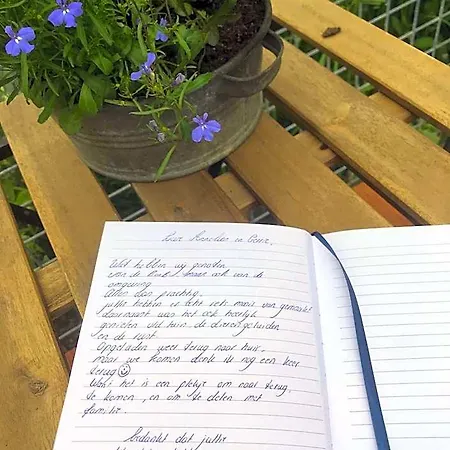 Voor Annelies en Geer,
Wat hebben wij genoten
van de B&B! maar ook van de
omgeving
Alles dan prachtig.
jullie hebben er echt iets moois van gemaakt
daarnaast was het ook heerlijk
genieten v/d tuin de dierengeluiden
en de rust.
Opgeladen weer terug naar huis,
maar we komen denk ik nog een keer
terug
Want het is een plekje om naar terug
te komen, en om te delen met
familie.
Bedankt dat jullie